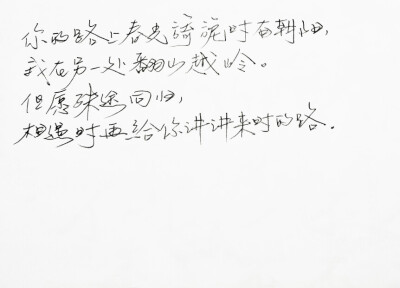 你的路上春光旖旎时有斜阳,
我在另一处翻山越岭。
但愿殊途同归,
相遇时再给你讲讲来时的路.